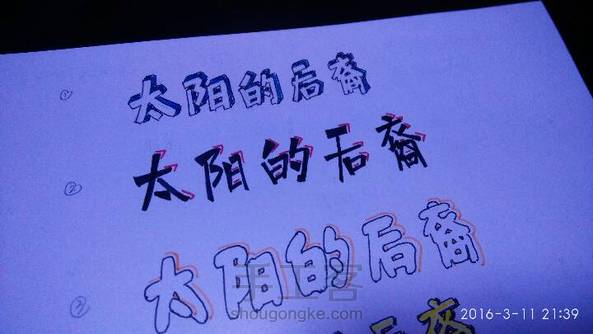 ① 太阳的后裔
② 太阳的后裔
③ 太阳的后裔
手工客
shougongke.com
2016-3-11 21:39